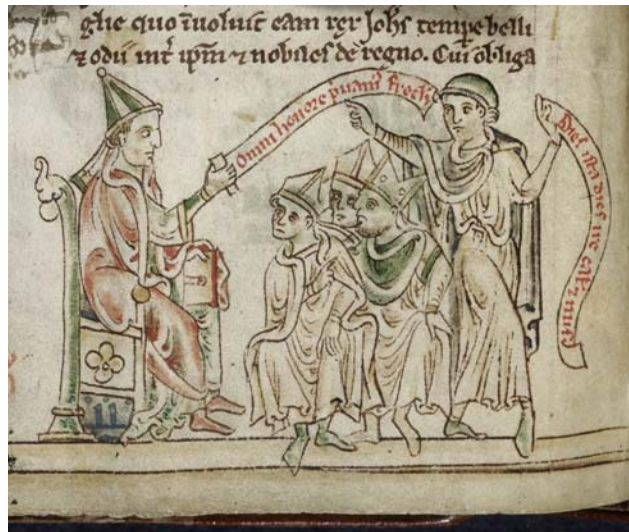 glie quo īuoluit eam rex Johs tempe belli
⁊ odii int ipm ⁊ nobiles de regno. Cui obliga
Omni honore priuam' freth
Dies ista dies ire